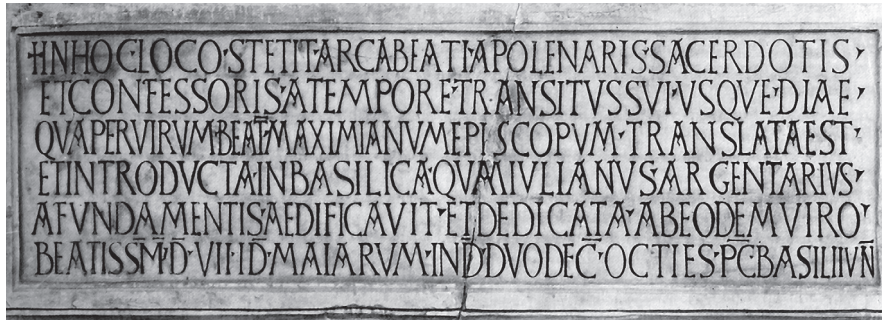 +INHOC·LOCO·STETIT·ARCABEATI·APOLENARIS·SACERDOTIS·
ETCONFESSORIS·ATEMPORE·TRANSITVSSVI·VSQVE·DIAE·
QVAPERVIRVMBEAT̅MAXIMIANVMEPISCOPVM·TRANSLATAEST·
ETINTRODVCTA·INBASILICA·QVAMIVLIANVS·ARGENTARIVS·
AFVNDAMENTIS·AEDIFICAVIT·ETDEDICATA·ABEODEMVIRO·
BEATISSM̅·D̅·VII·ID̅·MAIARVM·IND̅·DVODEC̅·OCTIES·PC̅·BASILIIVN̅